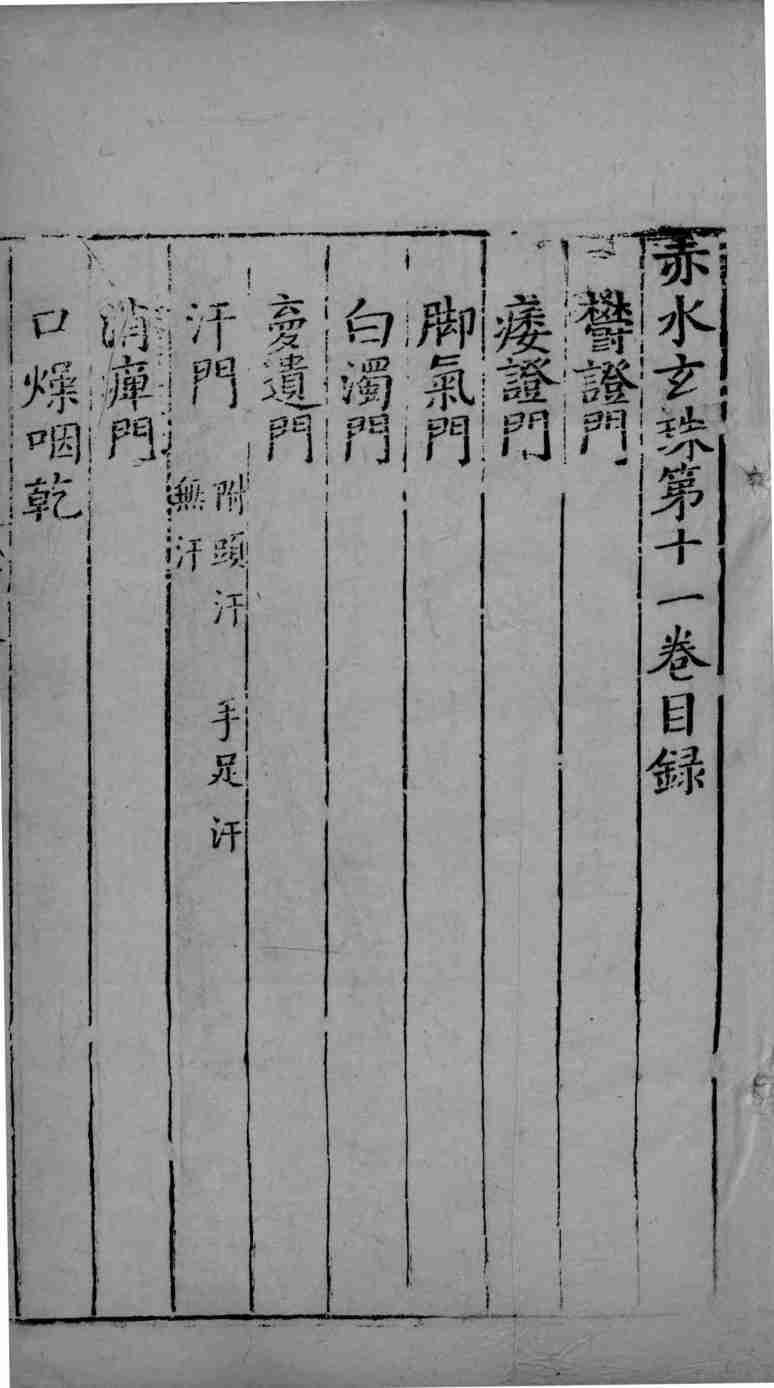 赤水玄珠第十一卷目録
鬱證門
痿證門
脚氣門
白濁門
夢遺門
汗門 附頭汗 手足汗
無汗
消癉門
口燥咽乾